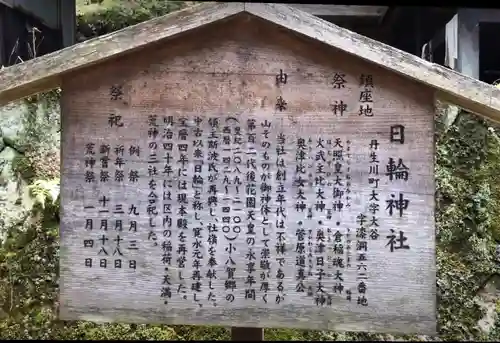 日輪神社
鎮座地
丹生川町大字大谷
字漆洞五六二番地
祭神
天照皇大御神・倉稲魂大神
火武主比大神・奥津日子大神
奥津比女大神・菅原道真公
由来
当社は創立年代は不祥であるが
山そのものが御神体として崇敬が厚く
第百二代後花園天皇の永享年間
(皇紀二〇八九〜二一〇〇)小八賀郷の
(西暦一四二九〜一四四〇)
領主斯波氏が再興し社領を奉献した。
中古以来日輪宮と称し、寛永元年再建し、
宝暦四年には現本殿を再営した。
明治四十年には区内の稲荷・天満・
荒神の三社を合祀した。
祭祀
例祭 九月三日
祈年祭 三月十八日
新嘗祭 十一月十八日
荒神祭 一月四日